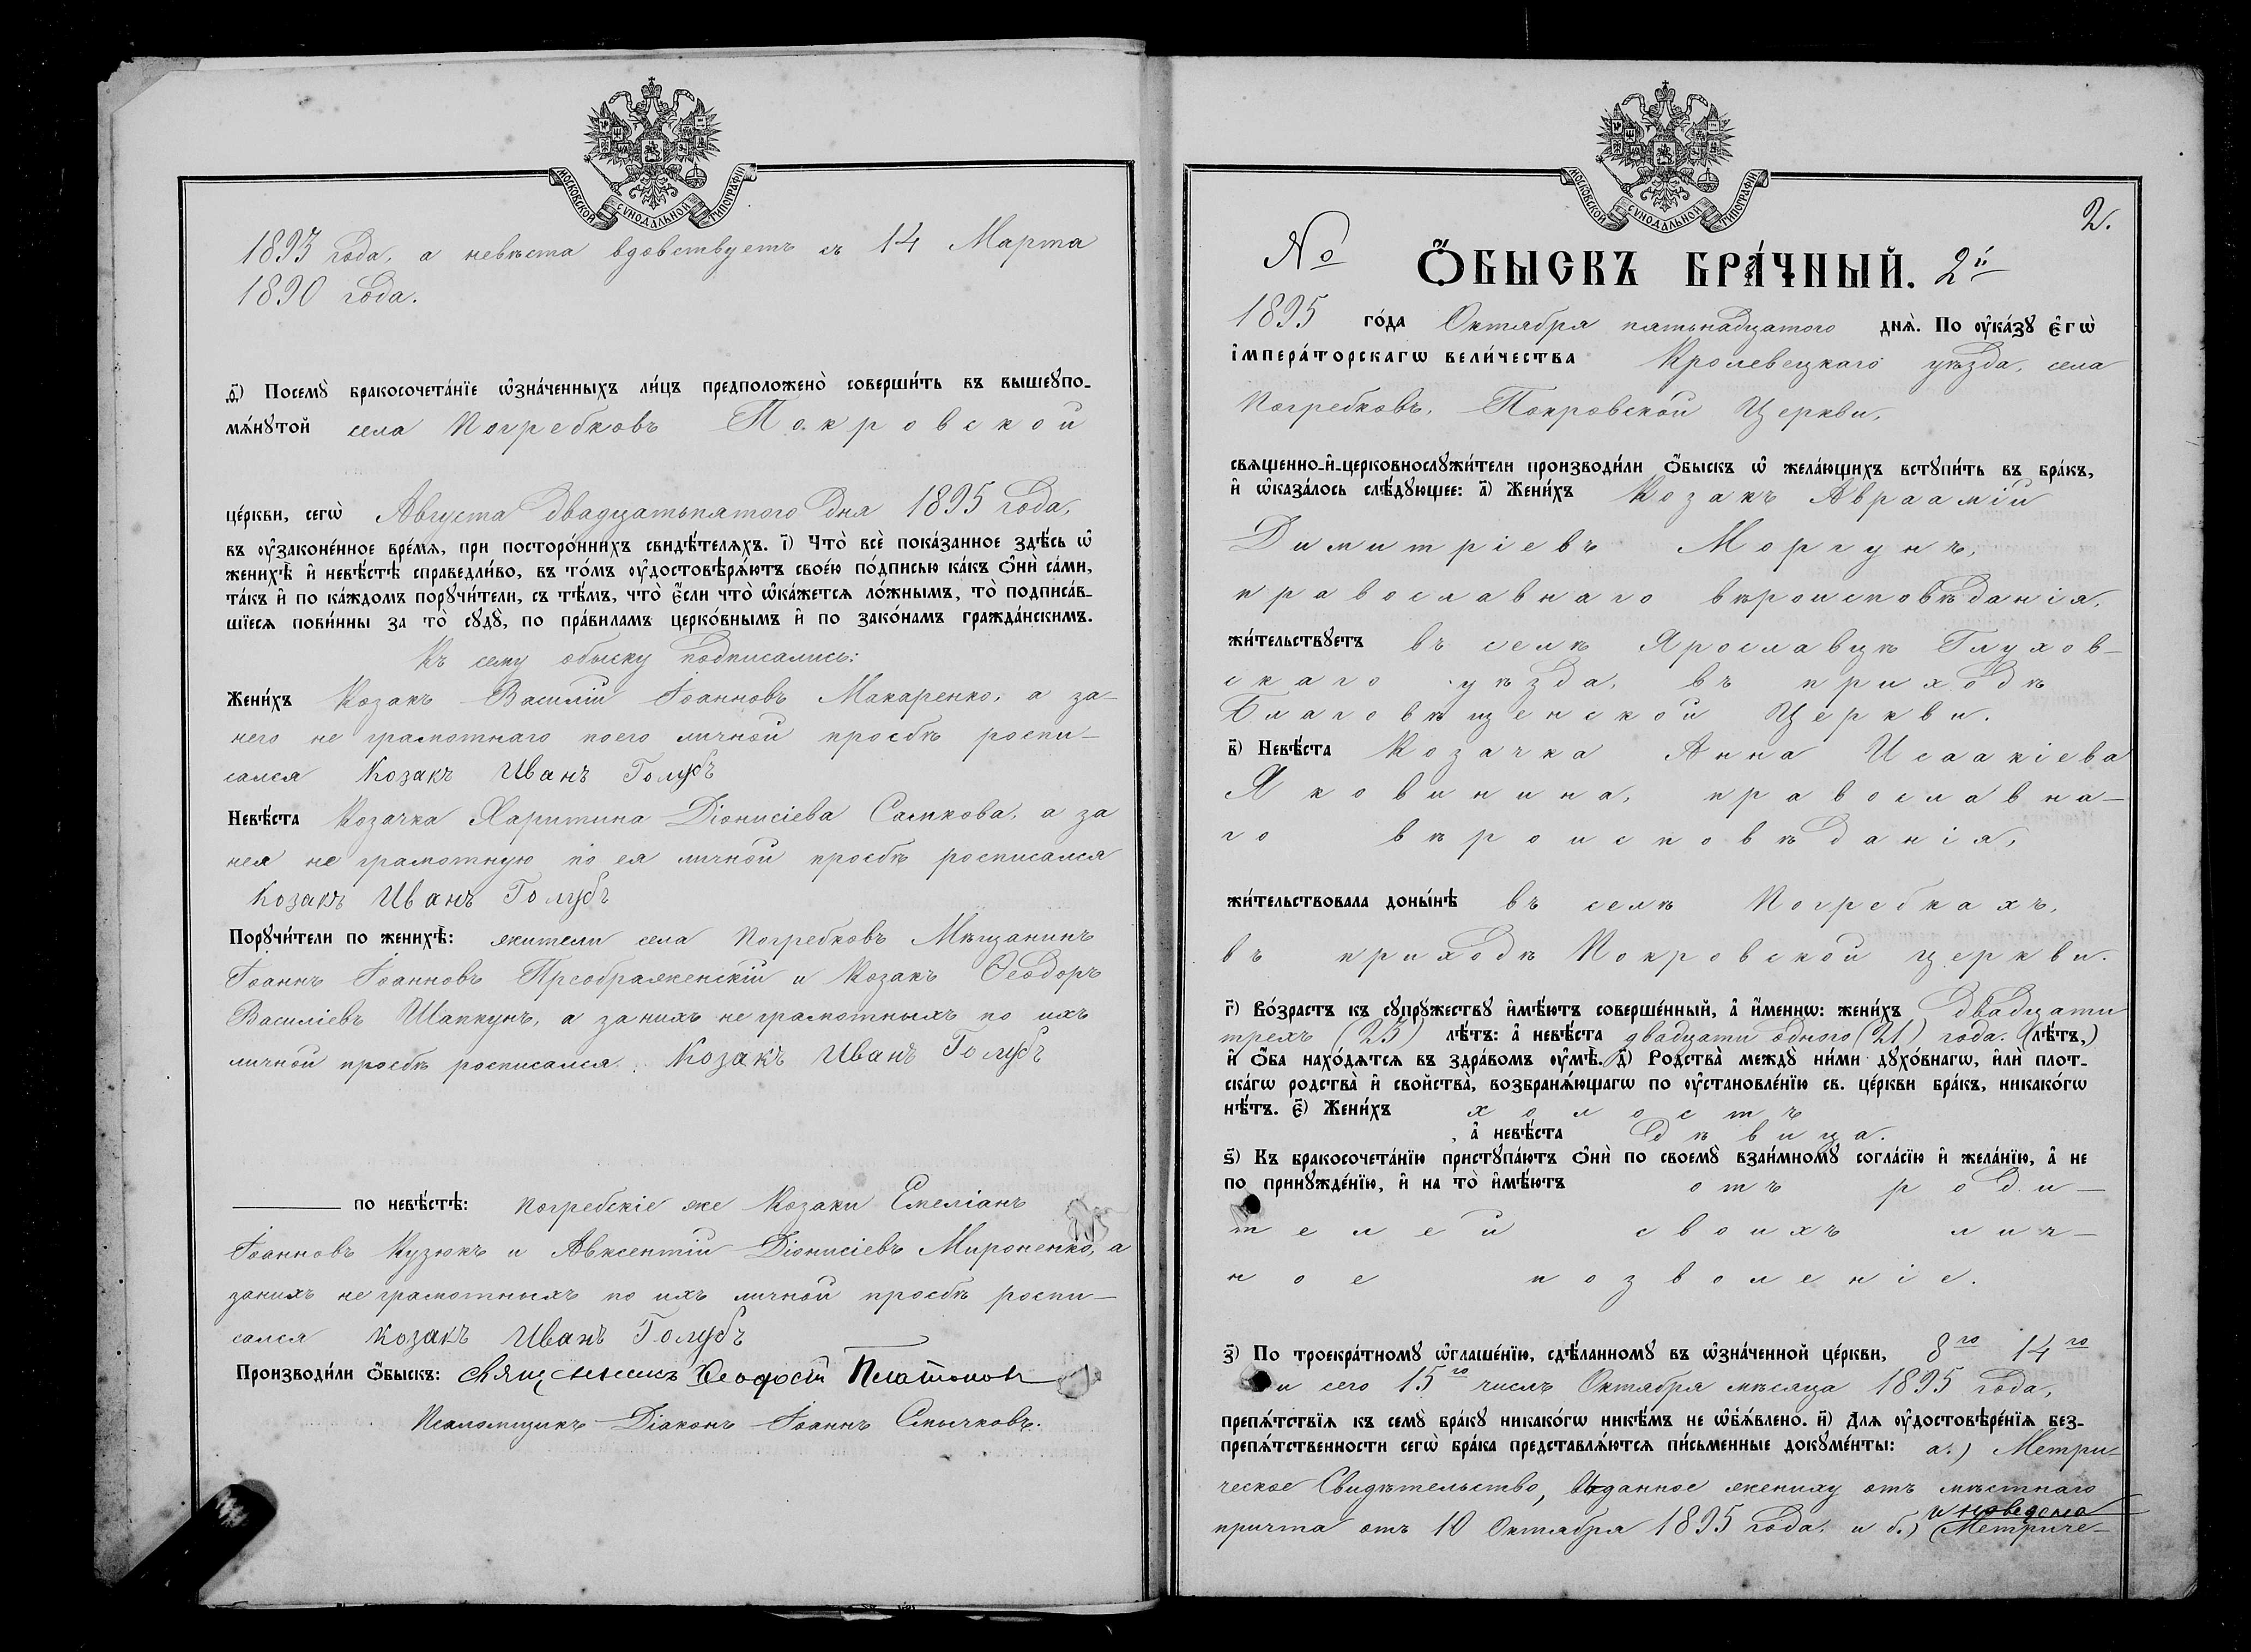 МОСКОВСКОЙ СѴНОДАЛЬНОЙ ТИПОГРАФІИ
1893 года, а невѣста вдовствуетъ съ 14 Марта
1890 года.
д҃) Посемꙋ̀ бракосочета́нїе ѡ҆зна́ченныхъ ли́цъ предположено̀ соверши́ть въ вышеꙋпо-
мѧ́нꙋтой села Погребковъ Покровской
це́ркви, сегѡ̀ Августа двадцатьпятого дня 1895 года,
въ ᲂу҆законе́нное вре́мѧ, при посторо́ннихъ свидѣ́телѧхъ. і҃) Что̀ всѐ пока́занное здѣ́сь ѡ҆
женихѣ̀ и҆ невѣ́стѣ справедли́во, въ то́мъ ᲂу҆достовѣрѧ́ютъ свое́ю по́дписью ка́къ ѻ҆нѝ са́ми,
та́къ и҆ по ка́ждомъ порꙋчи́тели, съ тѣ́мъ, что̀ є҆́сли что̀ ѡ҆ка́жетсѧ ло́жнымъ, то̀ подписа́в-
шїесѧ пови́нны за то̀ сꙋдꙋ̀, по пра́виламъ церко́внымъ и҆ по зако́намъ гражда́нскимъ.
Къ сему обыску подписались:
Жени́хъ Козакъ Василій Іоанновъ Макаренко, а за-
него не грамотнаго поего личной просбѣ роспи-
сался Козакъ Иванъ Голубъ
Невѣ́ста Козачка Харитина Діонисіева Самкова, а за
нея не грамотную по ея личной просбѣ росписался
Козакъ Иванъ Голубъ
Порꙋчи́тели по женихѣ̀: жители села Погребковъ Мѣщанинъ
Іоаннъ Іоанновъ Преображенскій и Козакъ Ѳеодоръ
Василіевъ Шапкунъ, а занихъ не грамотныхъ по ихъ
личной просбѣ росписался. Козакъ Иванъ Голубъ
по невѣ́стѣ: Погребскіе же Козаки Емеліанъ
Іоанновъ Кузюкъ и Авксентій Діонисіевъ Мироненко, а
занихъ не грамотныхъ по ихъ личной просбѣ роспи-
сался Козакъ Иванъ Голубъ
Производи́ли ѻ҆́быскъ: священникъ Ѳеодосій Платоновъ
Псаломщикъ Діаконъ Іоаннъ Смычковъ.
МОСКОВСКОЙ СѴНОДАЛЬНОЙ ТИПОГРАФІИ
2.
№ Ѻ҆́БЫСКЪ БРА́ЧНЫЙ. 2й
1895 го́да Октября пятьнадцатого днѧ̀. По ᲂу҆ка́зꙋ є҆гѡ̀
і҆мпера́торскагѡ вели́чества Кролевецкаго уѣзда, села
Погребковъ, Покровской Церкви,
свѧщенно-и҆-церковнослꙋжи́тели производи́ли ѻ҆́быскъ ѡ҆ жела́ющихъ встꙋпи́ть въ бра́къ,
и҆ ѡ҆каза́лось слѣ́дꙋющее: а҃) Жени́хъ Козакъ Авраамій
Димитріевъ Моргунъ,
православнаго вѣроисповѣданія,
жи́тельствꙋетъ въ селѣ Ярославцѣ Глухов-
скаго уѣзда, въ приходѣ
Благовѣщенской Церкви.
в҃) Невѣ́ста Козачка Анна Исаакіева
Яковинина, православна-
го вѣроисповѣданія,
жи́тельствовала доны́нѣ въ селѣ Погребкахъ,
въ приходѣ Покровской церкви.
г҃) Во́зрастъ къ сꙋпрꙋ́жествꙋ и҆мѣ́ютъ соверше́нный, а҆ и҆́меннѡ: жени́хъ двадцати
трехъ (23) лѣ́тъ: а҆ невѣ́ста двадцати одного (21) года. (лѣ́тъ,)
и҆ ѻ҆́ба нахо́дѧтсѧ въ здра́вомъ ᲂу҆мѣ̀. д҃) Родства̀ междꙋ̀ ни́ми дꙋхо́внагѡ, и҆лѝ плот-
ска́гѡ родства̀ и҆ сво́йства̀, возбранѧ́ющагѡ по ᲂу҆становле́нїю св. це́ркви бра́къ, никако́гѡ
нѣ́тъ. є҃) Жени́хъ холостъ
, а҆ невѣ́ста дѣвица.
ѕ҃) Къ бракосочета́нїю пристꙋпа́ютъ ѻ҆нѝ по своемꙋ̀ взаи́мномꙋ согла́сїю и҆ жела́нїю, а҆ не
по принꙋжде́нїю, и҆ на то̀ и҆мѣ́ютъ отъ роди-
телей своихъ лич-
ное позволеніе.
з҃) По троекра́тномꙋ ѡ҆глаше́нїю, сдѣ́ланномꙋ въ ѡ҆зна́ченной це́ркви, 8го 14го
и сего 15го числъ Октября мѣсяца 1895 года,
препѧ́тствїѧ къ семꙋ̀ бра́кꙋ никако́гѡ никѣ́мъ не ѡ҆б̾ѧ́влено. и҃) Длѧ ᲂу҆достовѣре́нїѧ без-
препѧ́тственности сегѡ̀ бра́ка представлѧ́ютсѧ пи́сьменные докꙋме́нты: а.) Метри-
ческое Свидѣтельство, выданное жениху отъ мѣстнаго
причта отъ 10 Октября 1895 года. и б.) Метриче-